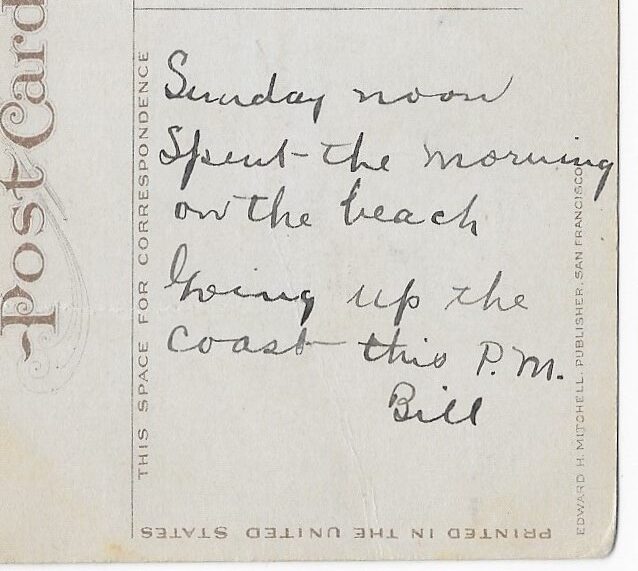 Post Card
THIS SPACE FOR CORRESPONDENCE
Sunday noon
Spent the morning
on the beach
Going up the
coast this P.M.
Bill
EDWARD H. MITCHELL, PUBLISHER, SAN FRANCISCO
PRINTED IN THE UNITED STATES